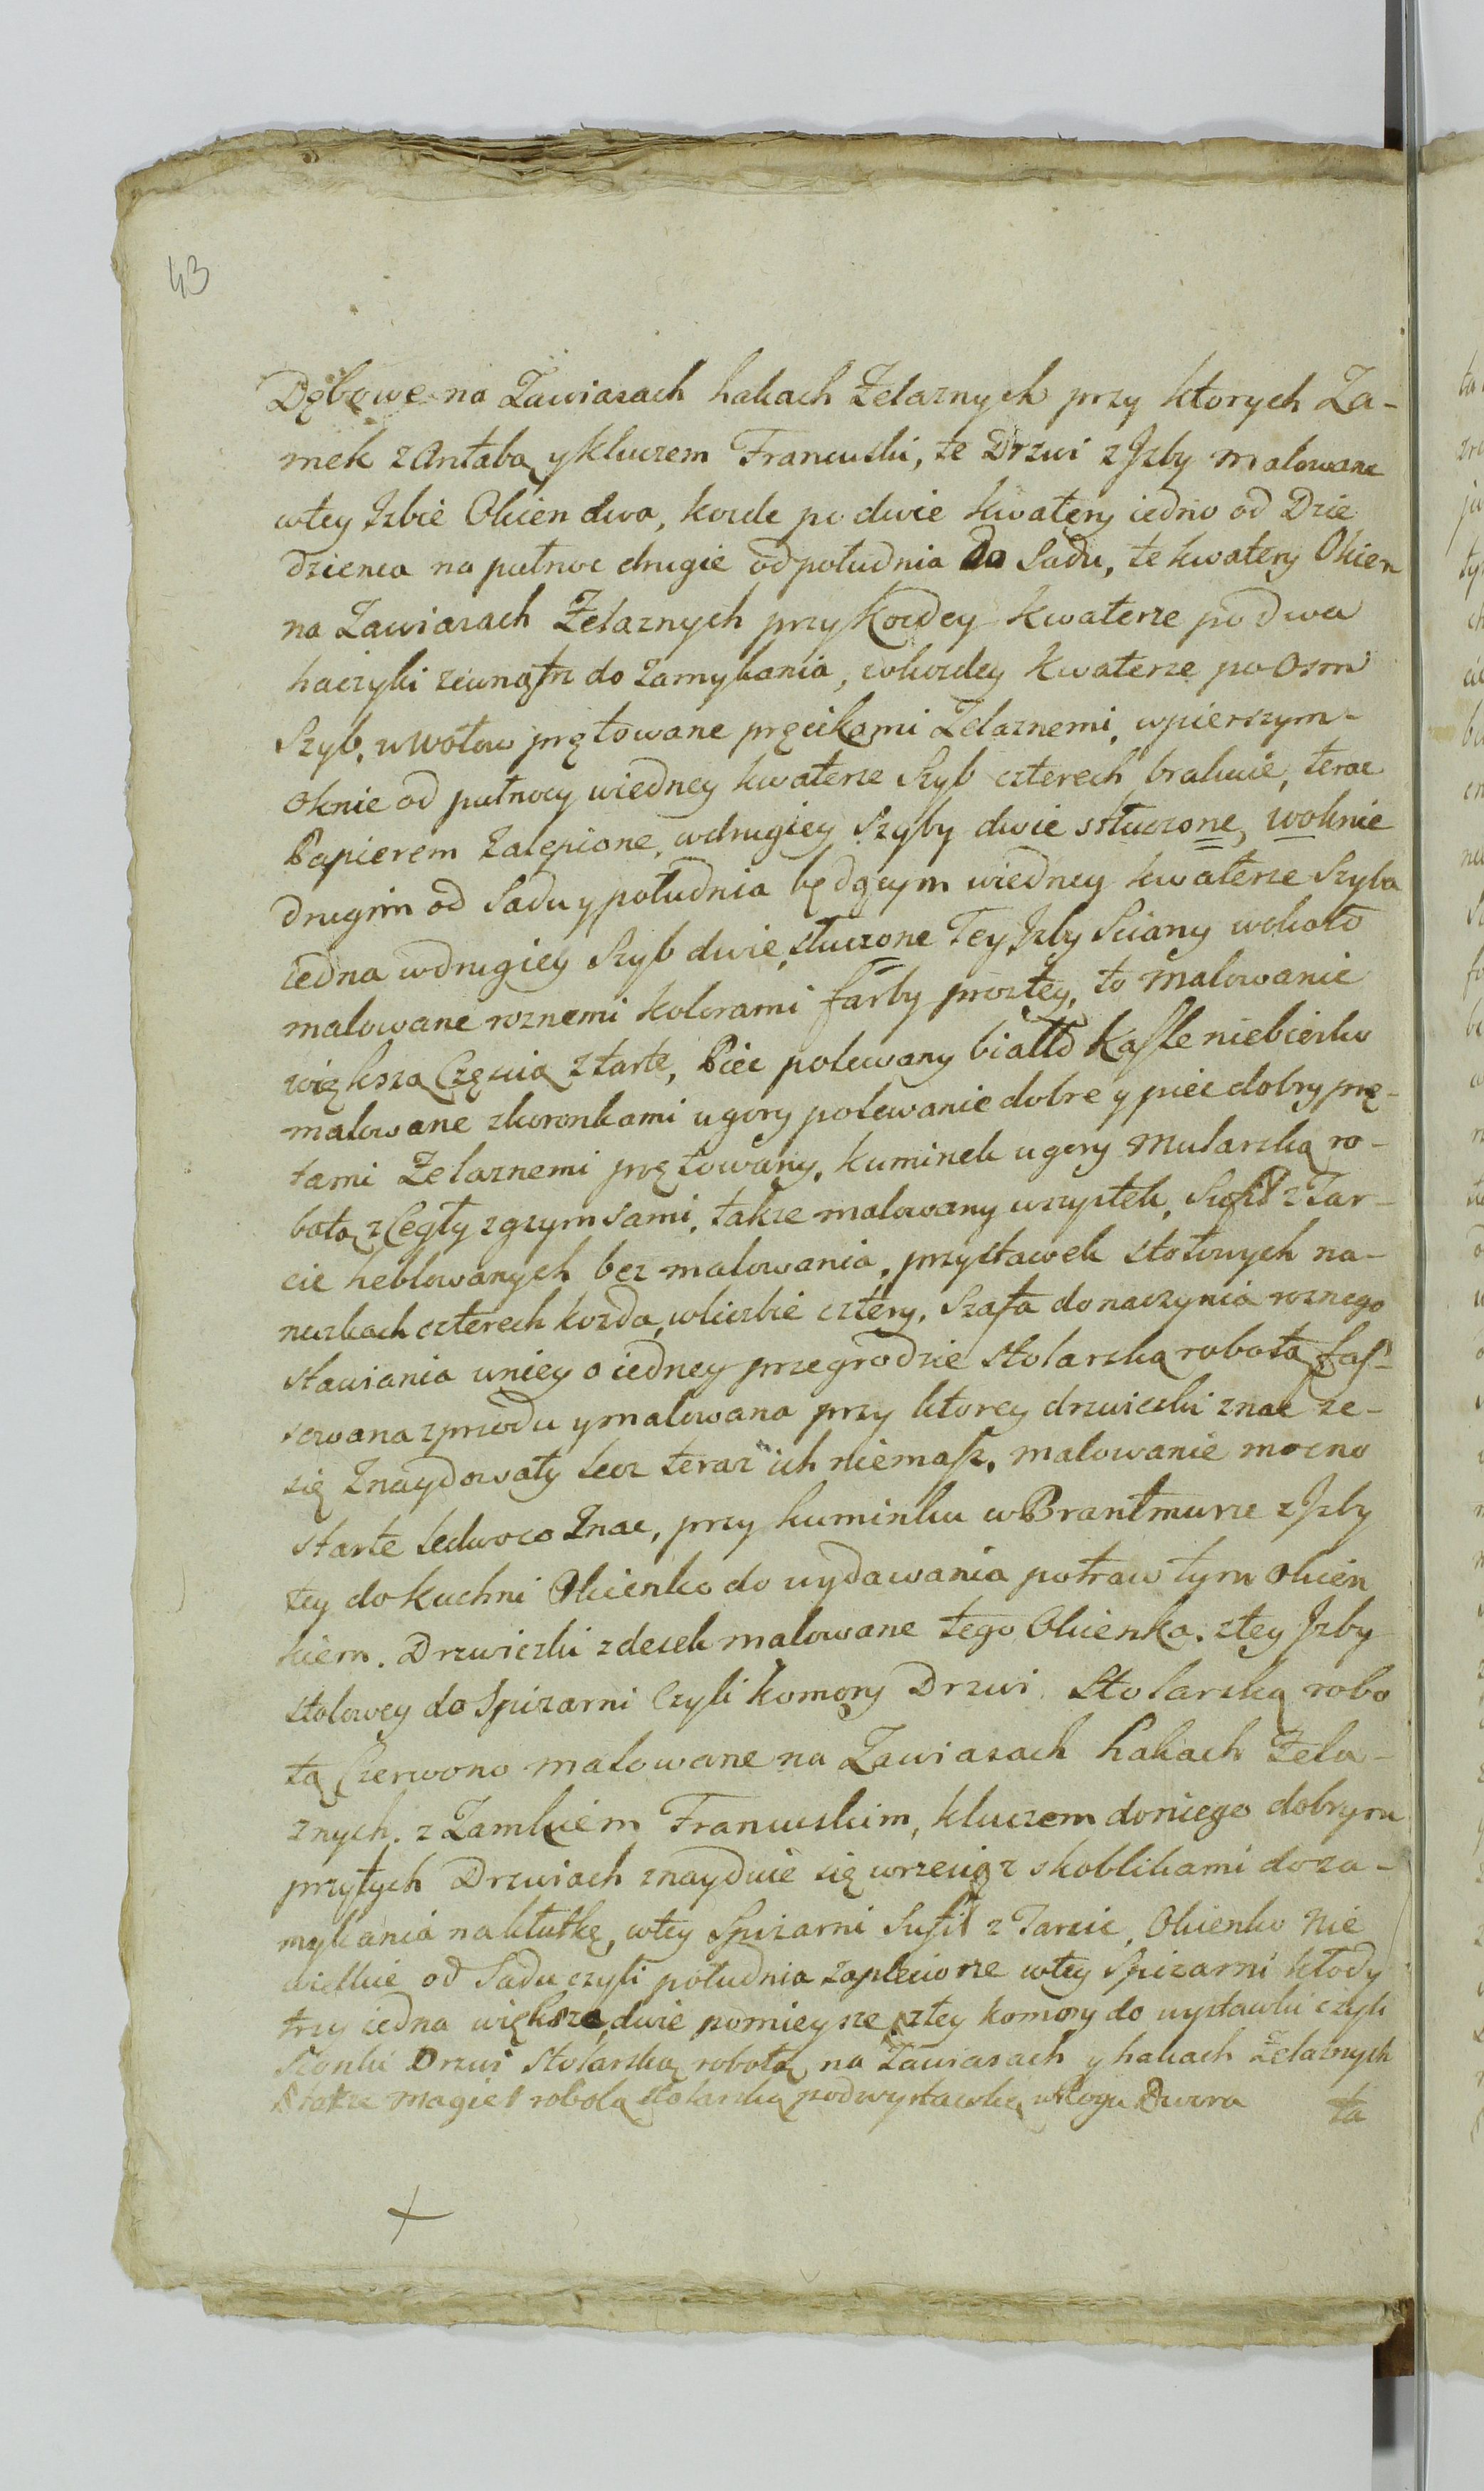 43
Dębowe na Zawiasach hakach Zelaznych przy ktorych Za-
mek z Antabą y kluczem Francuski, te Drzwi z Jzby malowane
wtey Jzbie Okien dwa, kozde po dwie kwatery iedno od Dzie
dzienca na pułnoc drugie od południa do Sadu, te kwatery Okien
na Zawiasach Zelaznych przy kozdey kwaterze po dwa
haczyki zewnątrz do zamykania, wkozdey kwaterze po osm
Szyb, wWołow prętowane pręcikami Zelaznemi, wpierszym
oknie od pułnocy wiedney kwaterze Szyb czterech brakuie, teraz
Papierem zalepione, wdrugiey Szyby dwie stłuczone, woknie
drugim od Sadu y południa będącym wiedney kwaterze Szyba
iedna wdrugiey Szyb dwie stłuczone Tey Jzby Sciany wokoło
malowane roznemi kolorami farby prostey, to malowanie
większą Częscią ztarte, Piec polewany biało kafle niebiesko
malowane zkoronkami ugory polewanie dobre y piec dobry prę-
tami Zelaznemi prętowany, kuminek ugory Mularską ro-
botą z Cegły zgzymsami, takze malowany wszystek, Sufit z Tar-
cic heblowanych bez malowania, przystawek stołowych na-
nuzkach czterech kozda, wliczbie cztery, Szafa do naczynia roznego
stawiania wniey o iedney przegrodzie stolarską robotą fas-
sowana zprzodu y malowana przy ktorey drzwiczki znac ze-
się Znaydowały lecz teraz ich niemasz, malowanie mocno
starte ledwoco Znac, przy kuminku wBrantmurze z Jzby
tey do kuchni Okienko do wydawania potraw tym Okien
kiem. Drzwiczki zdesek malowane tego Okienka. ztey Jzby
stolowey do Spizarni Czyli komory Drzwi Stolarską robo
tą Czerwono malowane na Zawiasach hakach Zela-
znych. z Zamkiem Francuskim, kluczem doniego dobrym
przytych Drzwiach znayduie się wrzeciąz skoblikami doza-
mykania na kłutkę, wtey Spizarni Sufit z Tarcic, Okienko Nie
wielkie od Sadu czyli południa wtey Spizarni kłody
trzy iedna większa, dwie pomieysze, ztey komory do wystawki czyli
Sionki Drzwi Stolarską robotą na Zawiasach y hakach Zelaznych
Magiel robotą stolarską podwystawką wRogu Dwora
ta